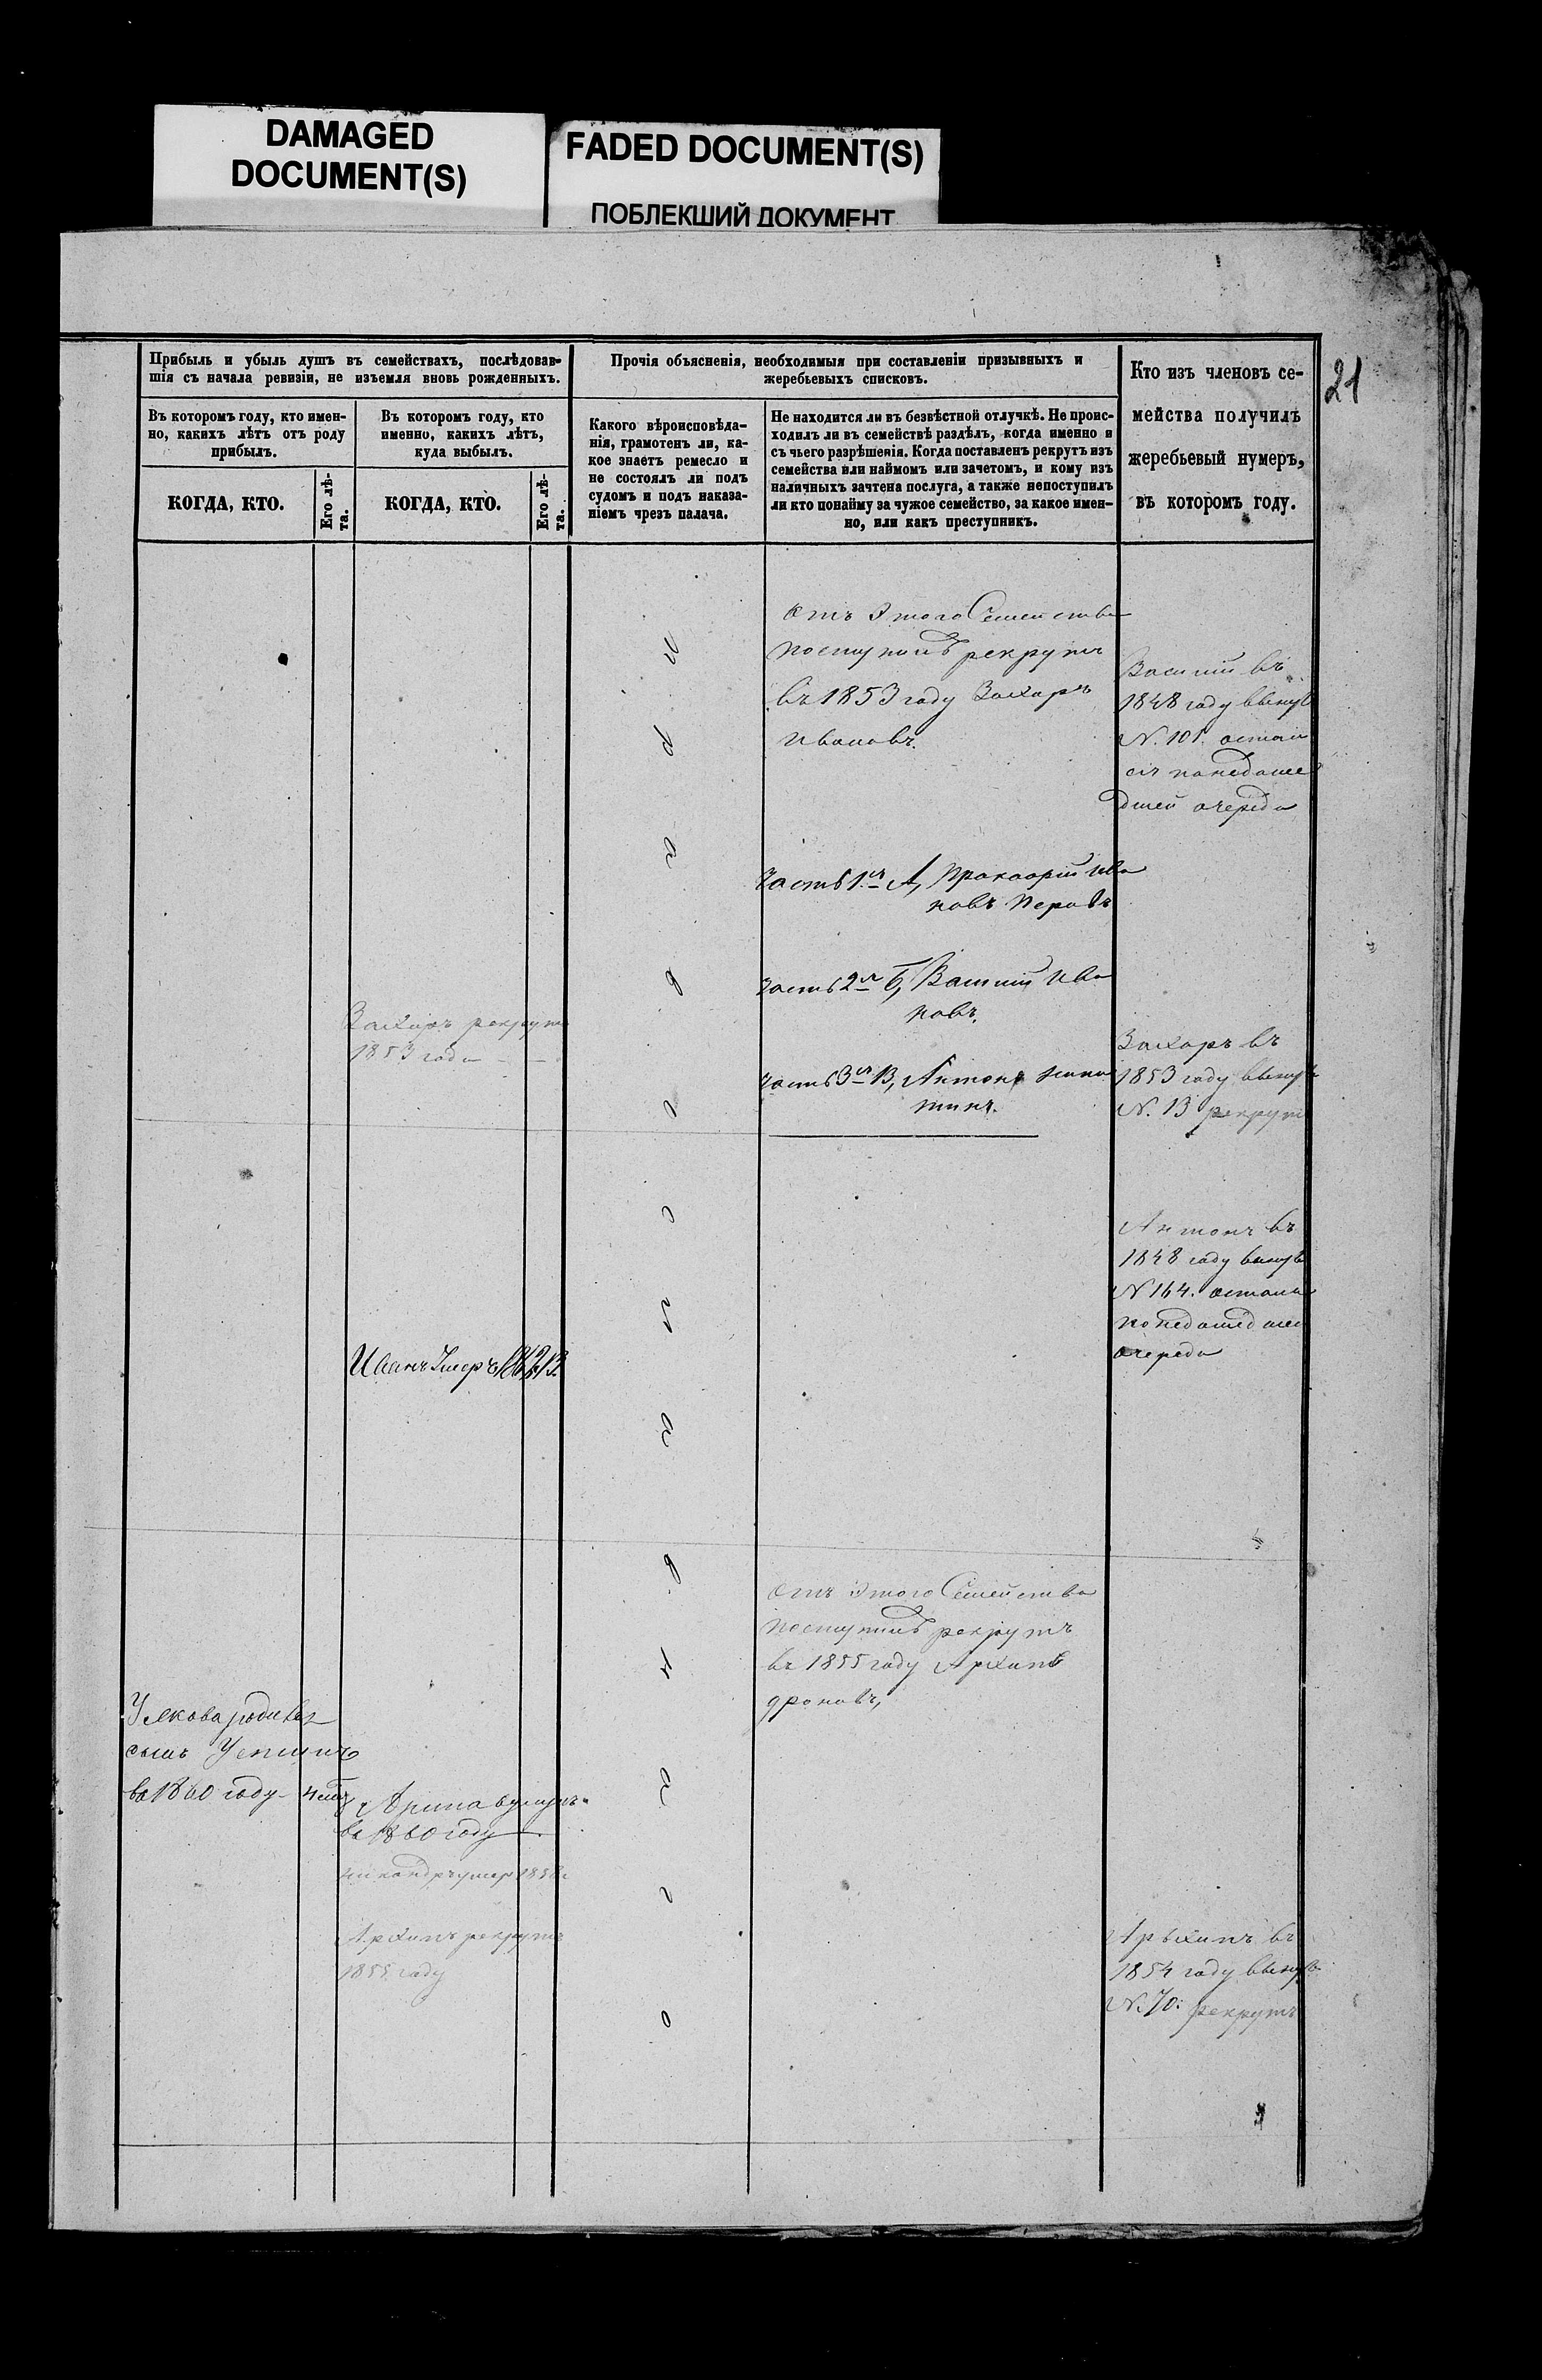 DAMAGED
DOCUMENT(S)
FADED DOCUMENT(S)
ПОБЛЕКШИЙ ДОКУМЕНТ
21
Прибыль и убыль душъ въ семействахъ, послѣдовав-
шія съ начала ревизіи, не изъемля вновь рожденныхъ.
Въ которомъ году, кто имен-
но, какихъ лѣтъ отъ роду
прибылъ.
Въ которомъ году, кто
именно, какихъ лѣтъ,
куда выбылъ.
КОГДА, КТО.
Его лѣ-
та.
КОГДА, КТО.
Его лѣ-
та.
Прочія объясненія, необходимыя при составленіи призывныхъ и
жеребьевыхъ списковъ.
Какого вѣроисповѣда-
нія, грамотенъ ли, ка-
кое знаетъ ремесло и
не состоялъ ли подъ
судомъ и подъ наказа-
ніемъ чрезъ палача.
Не находится ли въ безвѣстной отлучкѣ. Не проис-
ходилъ ли въ семействѣ раздѣлъ, когда именно и
съ чьего разрѣшенія. Когда поставленъ рекрутъ изъ
семейства или наймомъ или зачетомъ, и кому изъ
наличныхъ зачтена послуга, а также непоступилъ
ли кто понайму за чужое семейство, за какое имен-
но, или какъ преступникъ.
Кто изъ членовъ се-
мейства получилъ
жеребьевый нумеръ,
въ которомъ году.
Отъ Этого Семейства
поступилъ рекрутъ
въ 1853 году Захаръ
Ивановъ.
Василій въ
1848 году вынулъ
N. 101. остал
ся понедошед
дшей очереди
Часть 1я А, Ива
новъ
Часть 2я Б, Василій Ива
новъ.
Часть 3я В, Антонъ Ники
тинъ.
Захаръ рекрутъ
1853 года
Захаръ въ
1853 году вынулъ
N. 13 рекрутъ
Антонъ въ
1848 году вынулъ
N 164. остался
понедошедшей
очереди
Иванъ Умеръ
Отъ Этого Семейства
поступилъ рекрутъ
въ 1855 году Архипъ
фроновъ,
У Якова родився
сынъ
въ 1860 году
въ 1860 году
умеръ 1858
Архипъ рекрутъ
1855 году
Архипъ въ
1854 году вынулъ
N. 70. рекрутъ
п
р
а
в
о
с
л
а
в
н
а
г
о